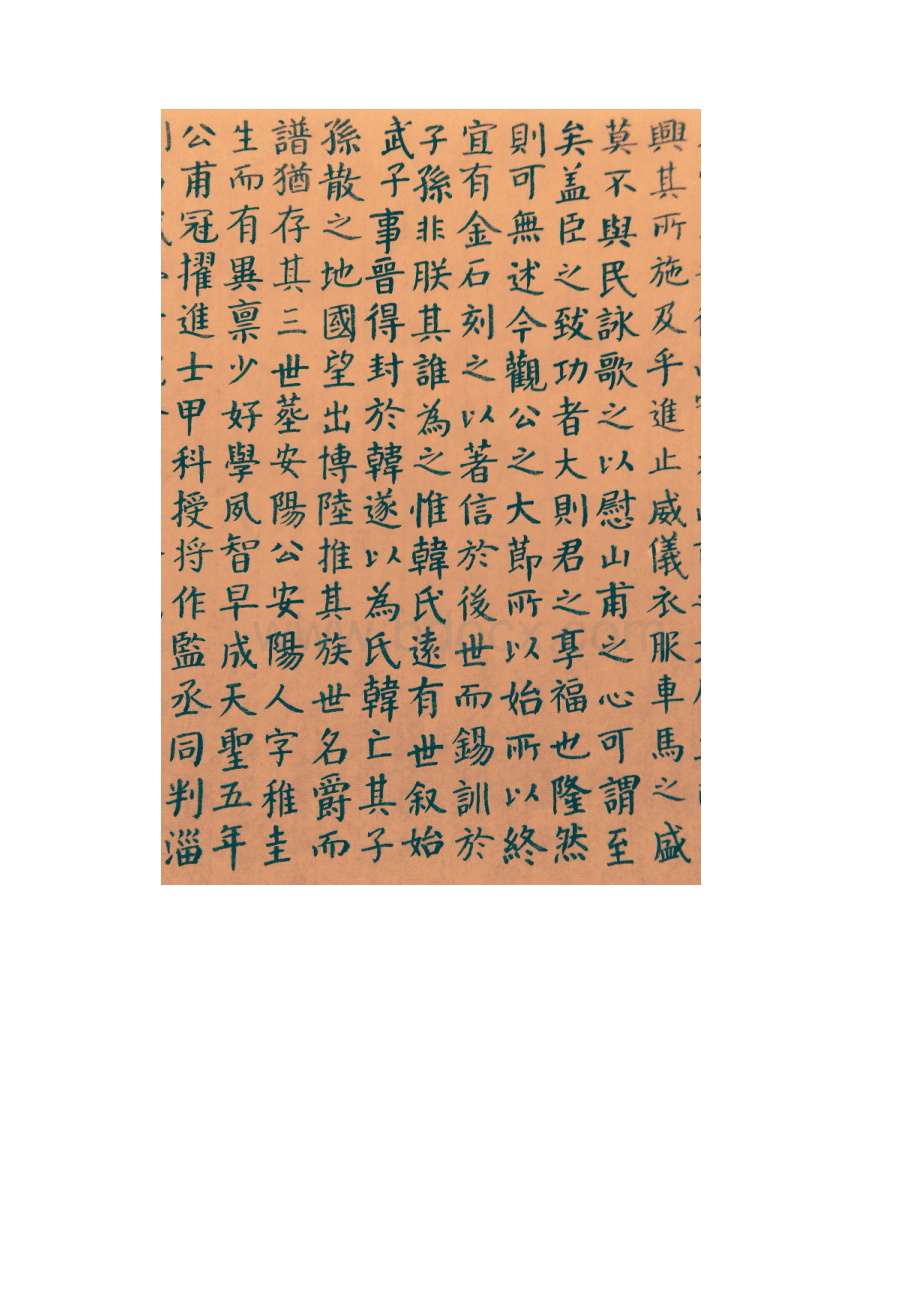 興其所施及乎進止威儀衣服車馬之盛
莫不與民詠歌之以慰山甫之心可謂至
矣盖臣之致功者大則君之享福也隆然
則可無述今觀公之大節所以始所以終
宜有金石刻之以著信於後世而錫訓於
子孫非朕其誰為之惟韓氏遠有世叙始
武子事晉得封於韓遂以為氏韓亡其子
孫散之地國望出博陸推其族世名爵而
譜猶存其三世塟安陽公安陽人字稚圭
生而有異禀少好學夙智早成天聖五年
公甫冠擢進士甲科授将作監丞同判淄